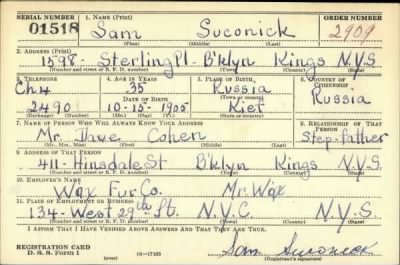 SERIAL NUMBER 1. NAME (Print) ORDER NUMBER
01518 Sam Suconick 2909
(First) (Middle) (Last)
2. ADDRESS (Print)
1598- Sterling Pl- B'klyn Kings N.Y.S
(Number and street or R. F. D. number) (Town) (County) (State)
3. TELEPHONE 4. AGE IN YEARS 5. PLACE OF BIRTH 6. COUNTRY OF CITIZENSHIP
Ch4 35 Russia
DATE OF BIRTH (Town or county) Russia
2490 10-15-1905 Kief
(Exchange) (Number) (Mo.) (Day) (Yr.) (State or country)
7. NAME OF PERSON WHO WILL ALWAYS KNOW YOUR ADDRESS 8. RELATIONSHIP OF THAT PERSON
Mr. Dave Cohen Step-father
(Mr., Mrs., Miss) (First) (Middle) (Last)
9. ADDRESS OF THAT PERSON
411-Hinsdale St B'klyn Kings N.Y.S
(Number and street or R. F. D. number) (Town) (County) (State)
10. EMPLOYER'S NAME
Wax Fur Co. Mr. Wax
11. PLACE OF EMPLOYMENT OR BUSINESS
134-West 29th St. N.Y.C. N.Y.S.
(Number and street or R. F. D. number) (Town) (County) (State)
I AFFIRM THAT I HAVE VERIFIED ABOVE ANSWERS AND THAT THEY ARE TRUE.
REGISTRATION CARD
D. S. S. FORM 1 (over) 16—17105 Sam Suconick
(Registrant's signature)